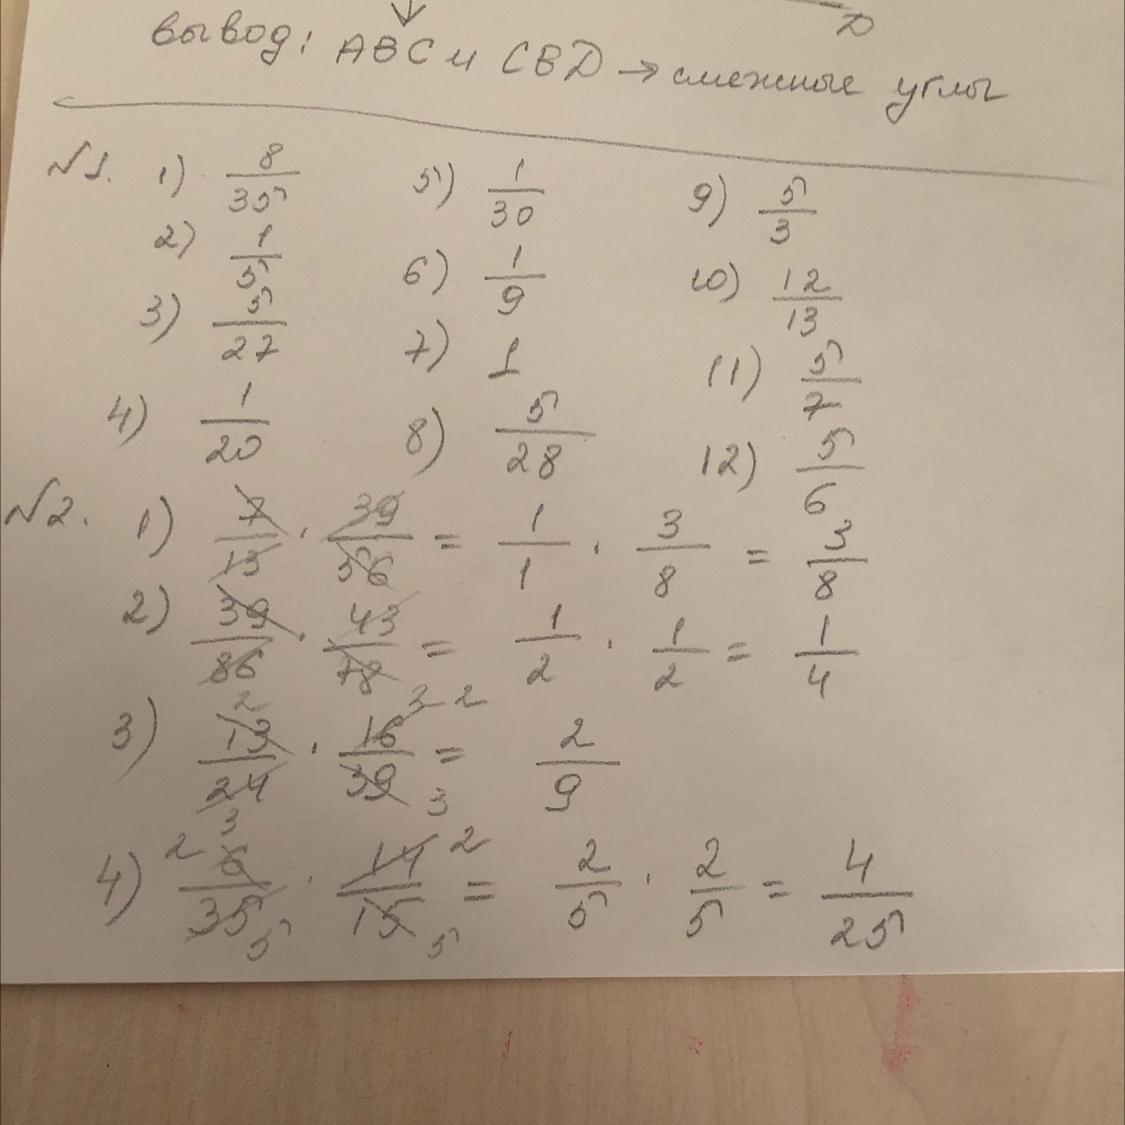 D
Вывод: ABC и CBD → смежные углы
№1. 1) 8/35 5) 1/30 9) 5/3
2) 1/5 6) 1/9 10) 12/13
3) 5/27 7) 1 11) 5/7
4) 1/20 8) 5/28 12) 5/6
№2. 1) 7/13 · 39/56 = 1/1 · 3/8 = 3/8
2) 39/86 · 43/78 = 1/2 · 1/2 = 1/4
3) 13/24 · 16/39 = 2/9
4) 6/35 · 14/15 = 2/5 · 2/5 = 4/25